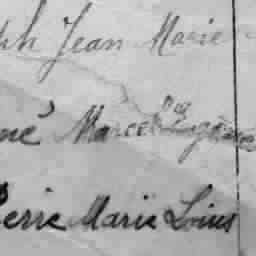 ph Jean Marie
né Marcel Eugène
Pierre Marie Loius